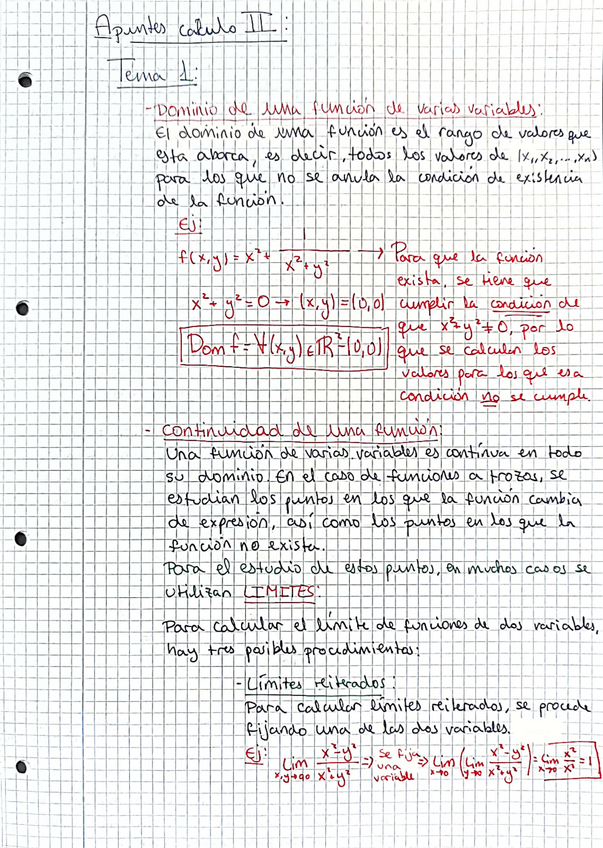 Apuntes calculo II:
Tema 1:
- Dominio de una función de varias variables:
El dominio de una función es el rango de valores que
esta abarca, es decir, todos los valores de (x₁, x₂, ..., xₙ)
para los que no se anula la condición de existencia
de la función.
Ej:
f(x,y) = x² + 1/(x² + y²) → Para que la función
exista, se tiene que
x² + y² = 0 → (x,y) = (0,0) cumplir la condición de
que x² + y² ≠ 0, por lo
Dom f = ∀(x,y) ∈ ℝ² - (0,0) que se calculan los
valores para los que esa
condición no se cumple.
- Continuidad de una función:
Una función de varias variables es contínua en todo
su dominio. En el caso de funciones a trozos, se
estudian los puntos en los que la función cambia
de expresión, así como los puntos en los que la
función no exista.
Para el estudio de estos puntos, en muchos casos se
utilizan LIMITES:
Para calcular el límite de funciones de dos variables,
hay tres posibles procedimientos:
- Límites reiterados:
Para calcular límites reiterados, se procede
fijando una de las dos variables.
Ej: Lim x,y→0,0 (x² - y²)/(x² + y²) ⇒ se fija una variable ⇒ Lim x→0 (Lim y→0 (x² - y²)/(x² + y²)) = Lim x→0 x²/x² = 1